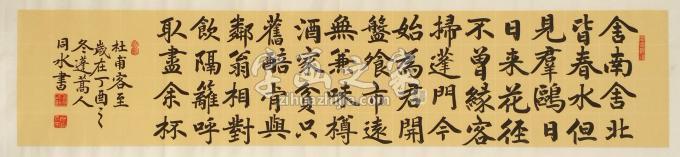 舍南舍北
皆春水但
見羣鷗日
日来花徑
不曾緣客
掃蓬門今
始為君開
盤飧市遠
無兼味樽
酒家貧只
舊醅肯與
鄰翁相對
飲隔籬呼
取盡余杯
杜甫客至
歲在丁酉之
冬蓬蒿人
同水書
字画之家
zihuazhijia.com